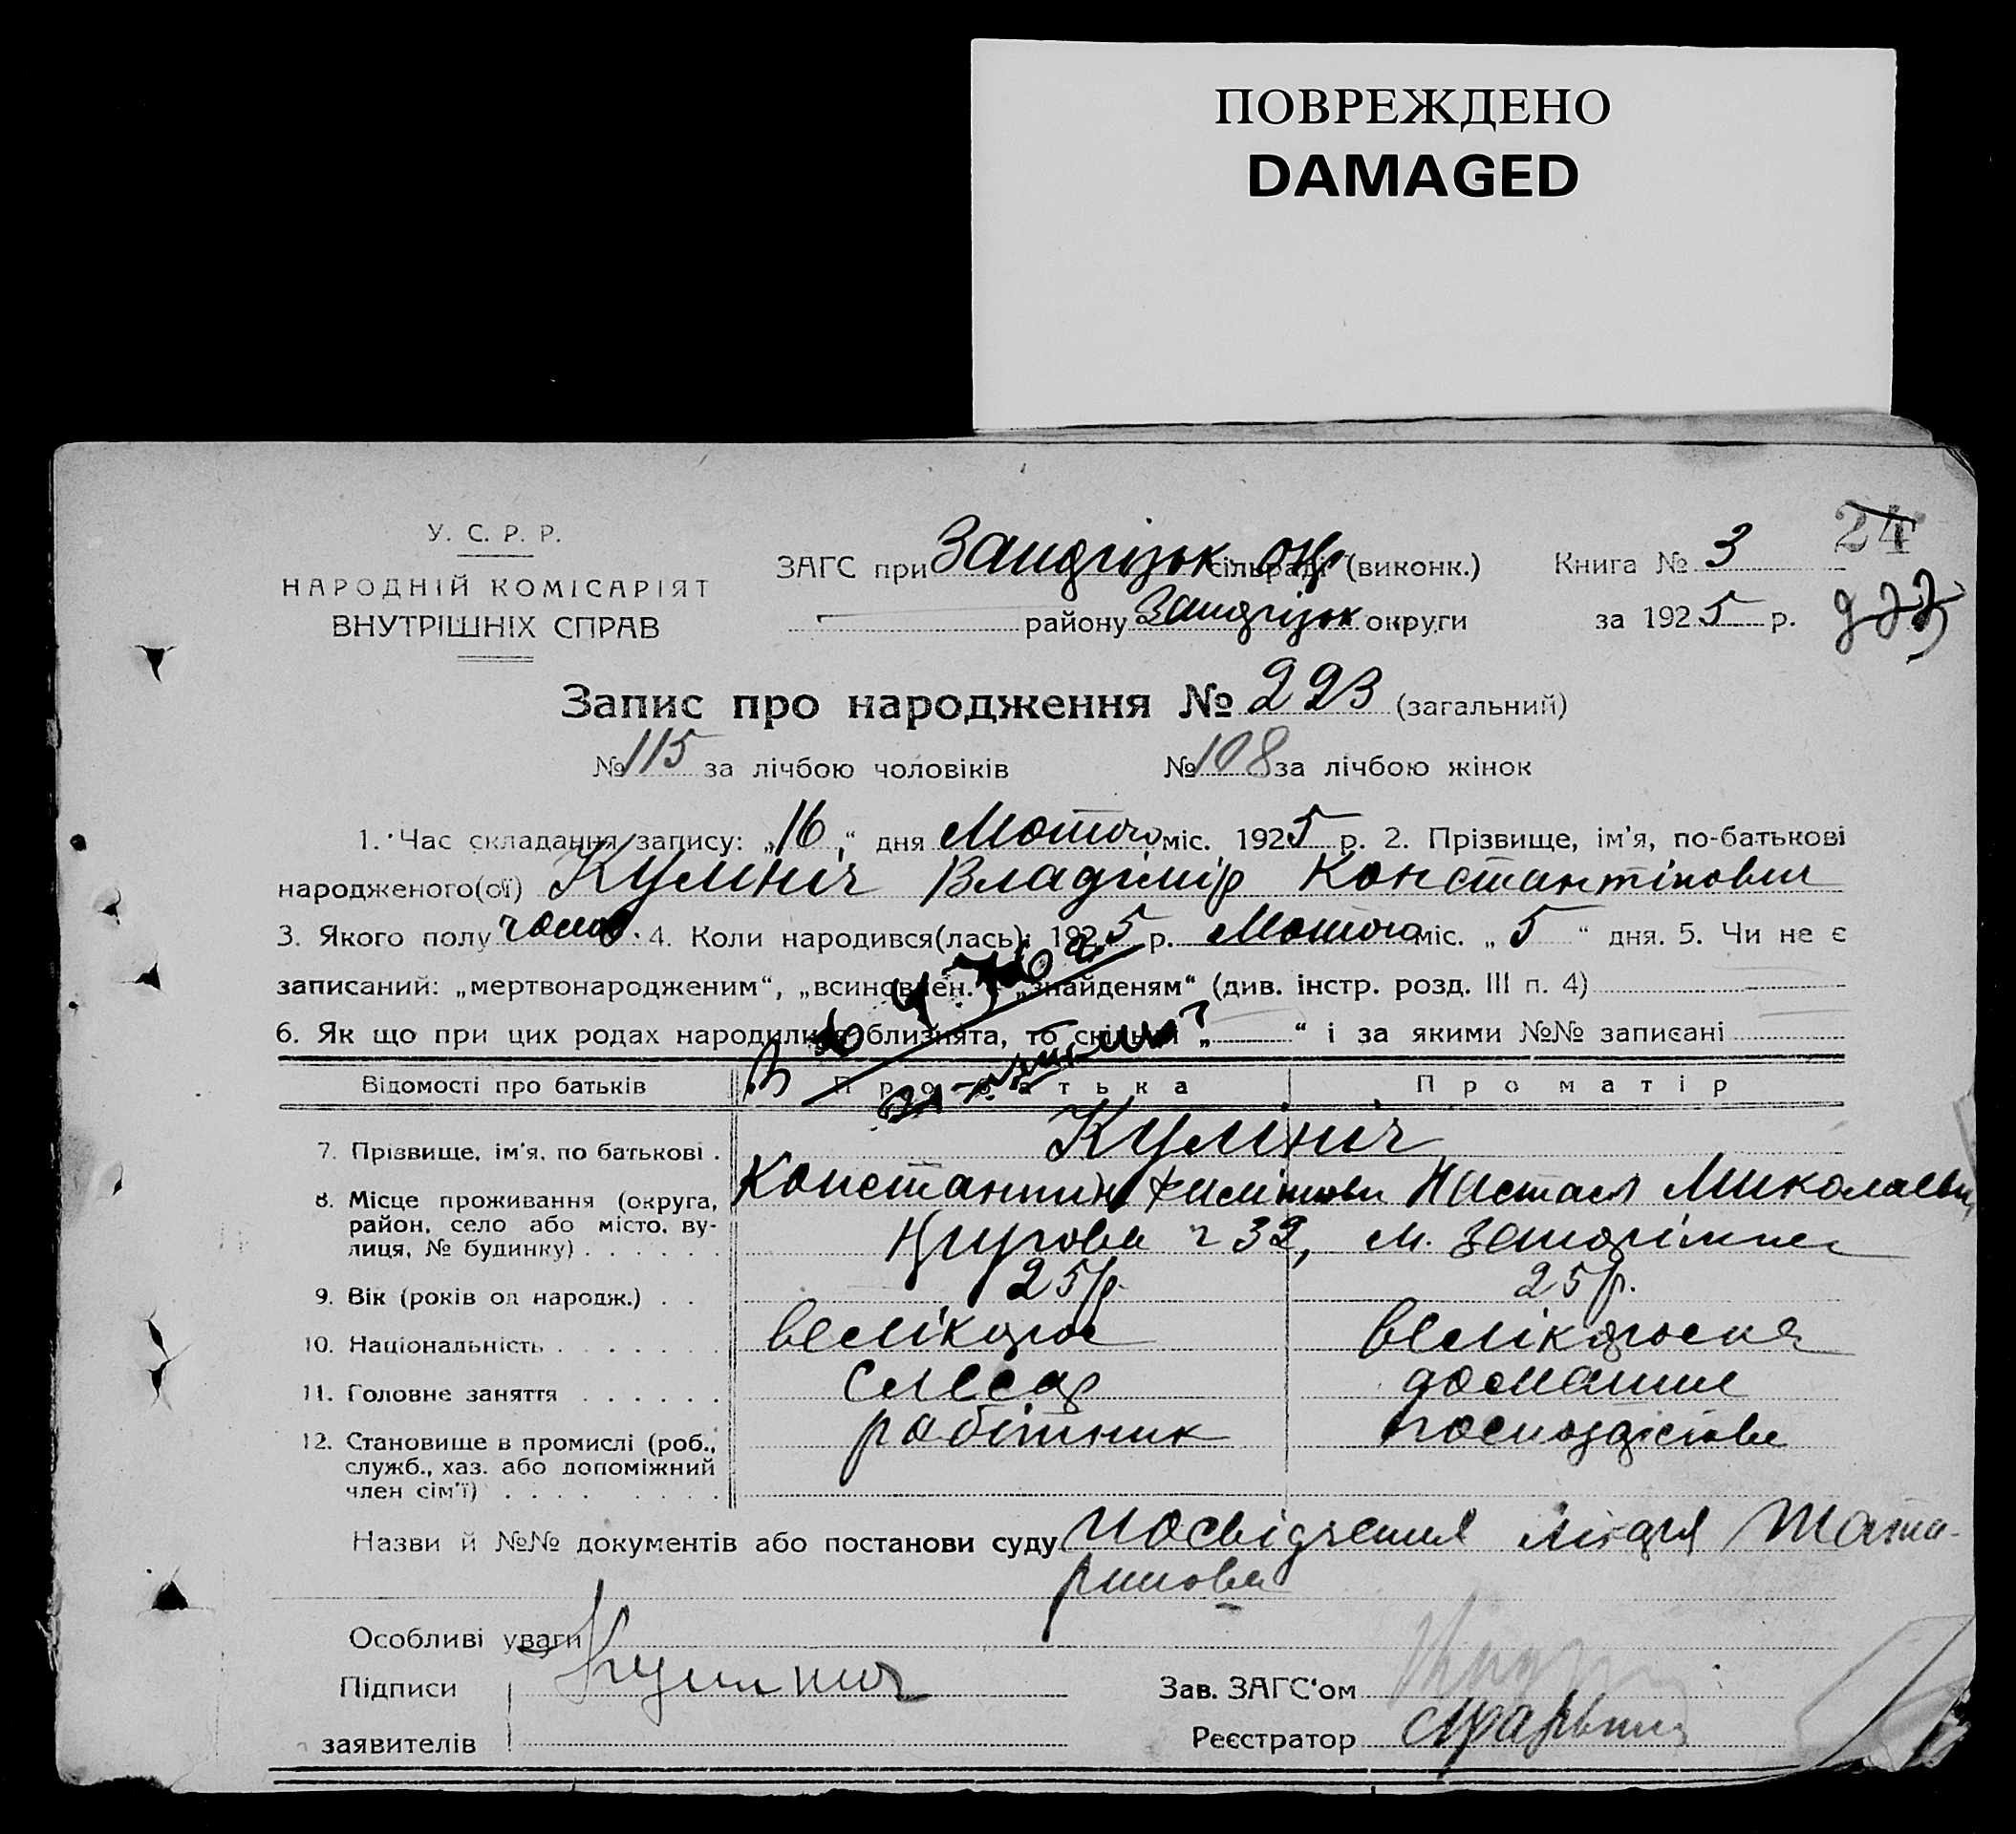 ПОВРЕЖДЕНО
DAMAGED
24
У. С. Р. Р.
НАРОДНІЙ КОМІСАРІЯТ
ВНУТРІШНІХ СПРАВ
ЗАГС при сільраді (виконк.)
району округи
Книга № 3
за 1925 р.
223
Запис про народження № 223 (загальний)
№ 115 за лічбою чоловіків № 108 за лічбою жінок
1. Час складання запису: „16“ дня Лютого міс. 1925 р. 2. Прізвище, ім'я, по-батькові
народженого(ої) Кулініч Владімір Константінович
3. Якого полу чолов. 4. Коли народився(лась): 1925 р. Лютого міс. „5“ дня. 5. Чи не є
записаний: „мертвонародженим“, „всиновлен.“ „знайденям“ (див. інстр. розд. III п. 4)
6. Як що при цих родах народились близнята, то скільки „ “ і за якими №№ записані
Відомості про батьків Про батька Про матір
7. Прізвище, ім'я, по батькові . Кулініч
Константин Настасія Миколаевна
8. Місце проживання (округа,
район, село або місто, ву-
лиця, № будинку) . . . . . . 32, м.
9. Вік (років од народж.) . . 25 р. 25 р.
10. Національність . . . . . . . велікорос велікоросия
11. Головне заняття . . . . . . слесар домашне
12. Становище в промислі (роб., робітник господарство
служб., хаз. або допоміжний
член сім'ї) . . . . . . . .
Назви й №№ документів або постанови суду Посвідчення лікаря Тата-
ринова
Особливі уваги
Підписи Кулинич
заявителів
Зав. ЗАГС'ом
Реєстратор